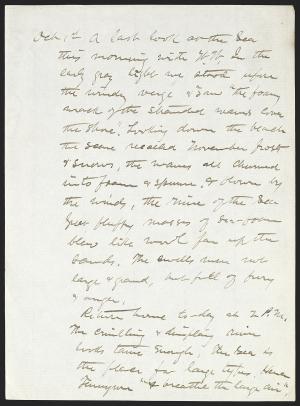 Oct 1st A last look at the Sea
this morning with W.W. In the
early gray light we stood upon
the windy verge & "saw the foamy
wrack of the stranded waves cover
the shore". Looking down the beach
the scene recalled November frost
& snows, the waves all churned
into foam & spume, & blown by
the winds, the rime of the sea
Great fluffy masses of sea-foam
blew like wool far up the
sands. The swells were not
large & grand, but full of fury
& anger.
Return home to-day at 2 P.M.
The crinkling & dimpling river
looks tame enough; the sea is
the place for large types. Hence
Tennyson "to breathe the large air".